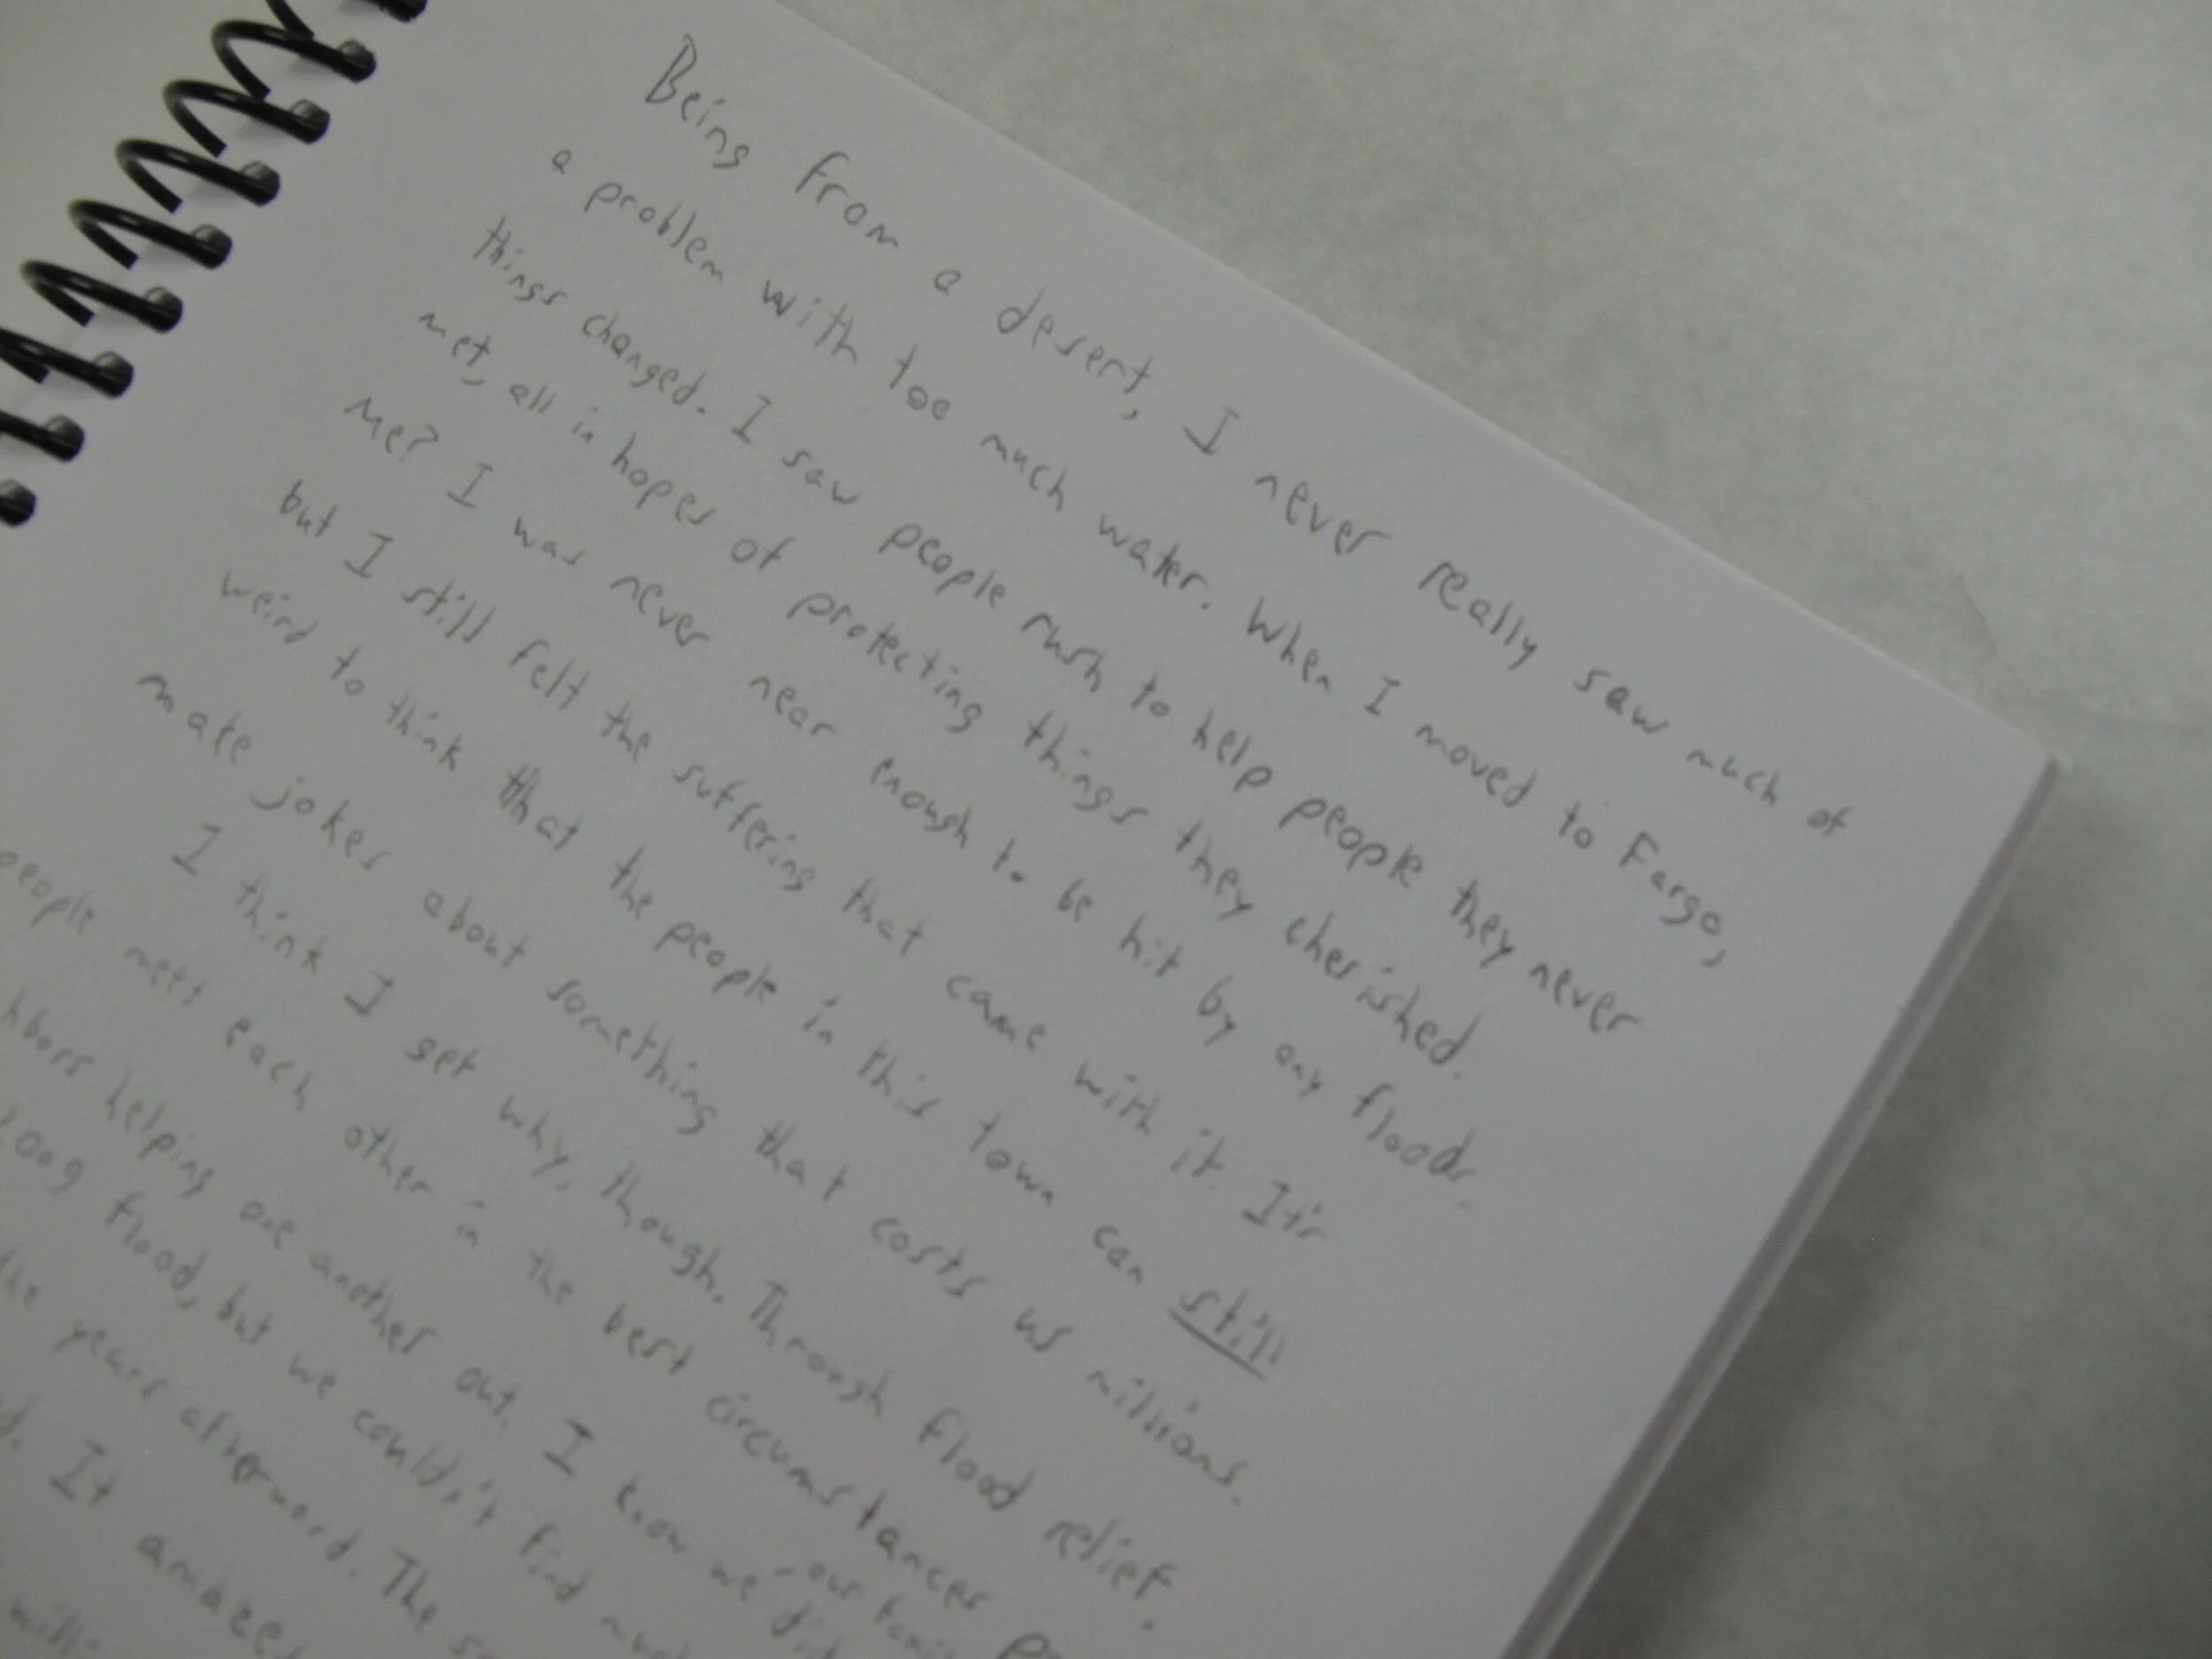 Being from a desert, I never really saw much of
a problem with too much water. When I moved to Fargo,
things changed. I saw people rush to help people they never
met, all in hopes of protecting things they cherished.
Me? I was never near enough to be hit by any floods,
but I still felt the suffering that came with it. It's
weird to think that the people in this town can still
make jokes about something that costs us millions.
I think I get why, though. Through flood relief,
people meet each other in the best circumstances
helping one another out. I know we did
2009 flood, but we couldn't find
the years afterward. The
It amazes